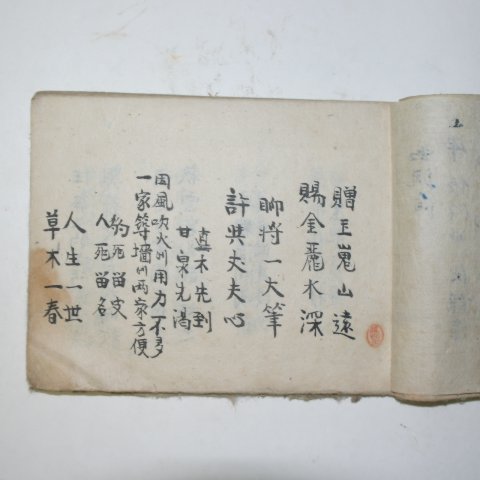 贈玉嵬山遠
賜金麗水深
聊將一大筆
許共丈夫心
直木先到
甘泉先渴
因風吹火用力不多
一家築墻兩家方便
豹死留皮
人死留名
人生一世
草木一春